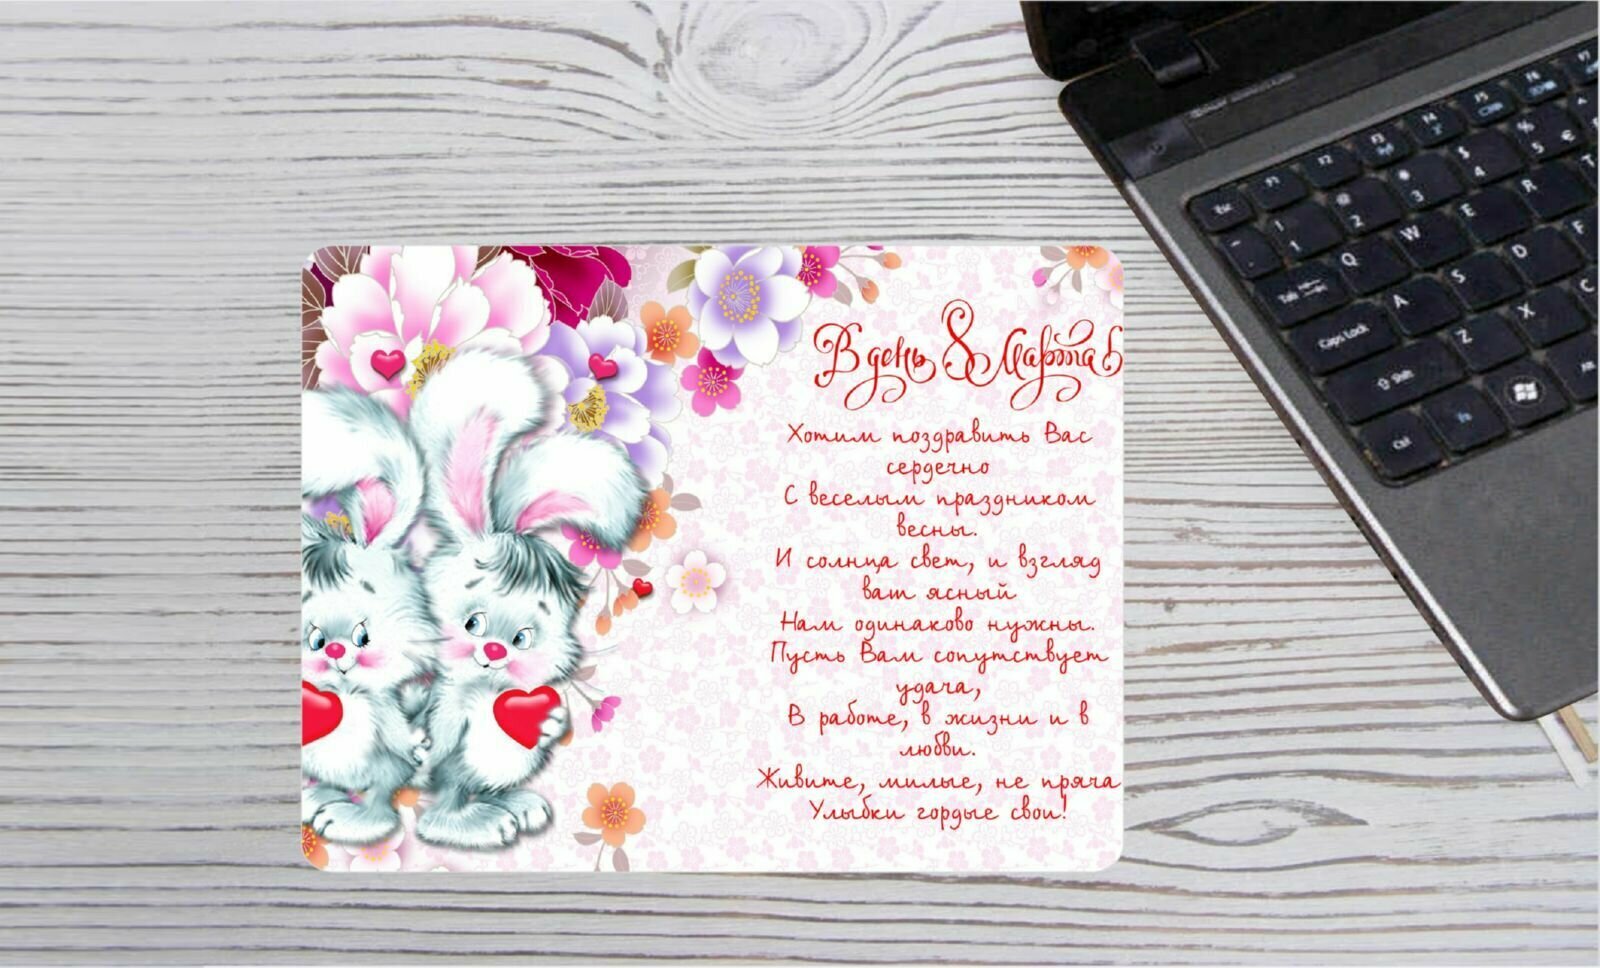 В день 8 Марта
Хотим поздравить Вас
сердечно
С веселым праздником
весны.
И солнца свет, и взгляд
ваш ясный
Нам одинаково нужны.
Пусть Вам сопутствует
удача,
В работе, в жизни и в
любви.
Живите, милые, не пряча
Улыбки гордые свои!
Esc F1 F2 F3 F4 F5 F6 F7
~ ! 1 @ 2 3 $ 4 % 5 €
Tab Q W E R T
Caps Lock A S D F
Shift Z X C
Ctrl Fn Alt